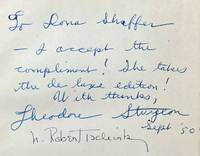 To Dona Shaffer
— I accept the
compliment! She takes
the de luxe edition!
With thanks,
Theodore Sturgeon
Sept 50
Robert